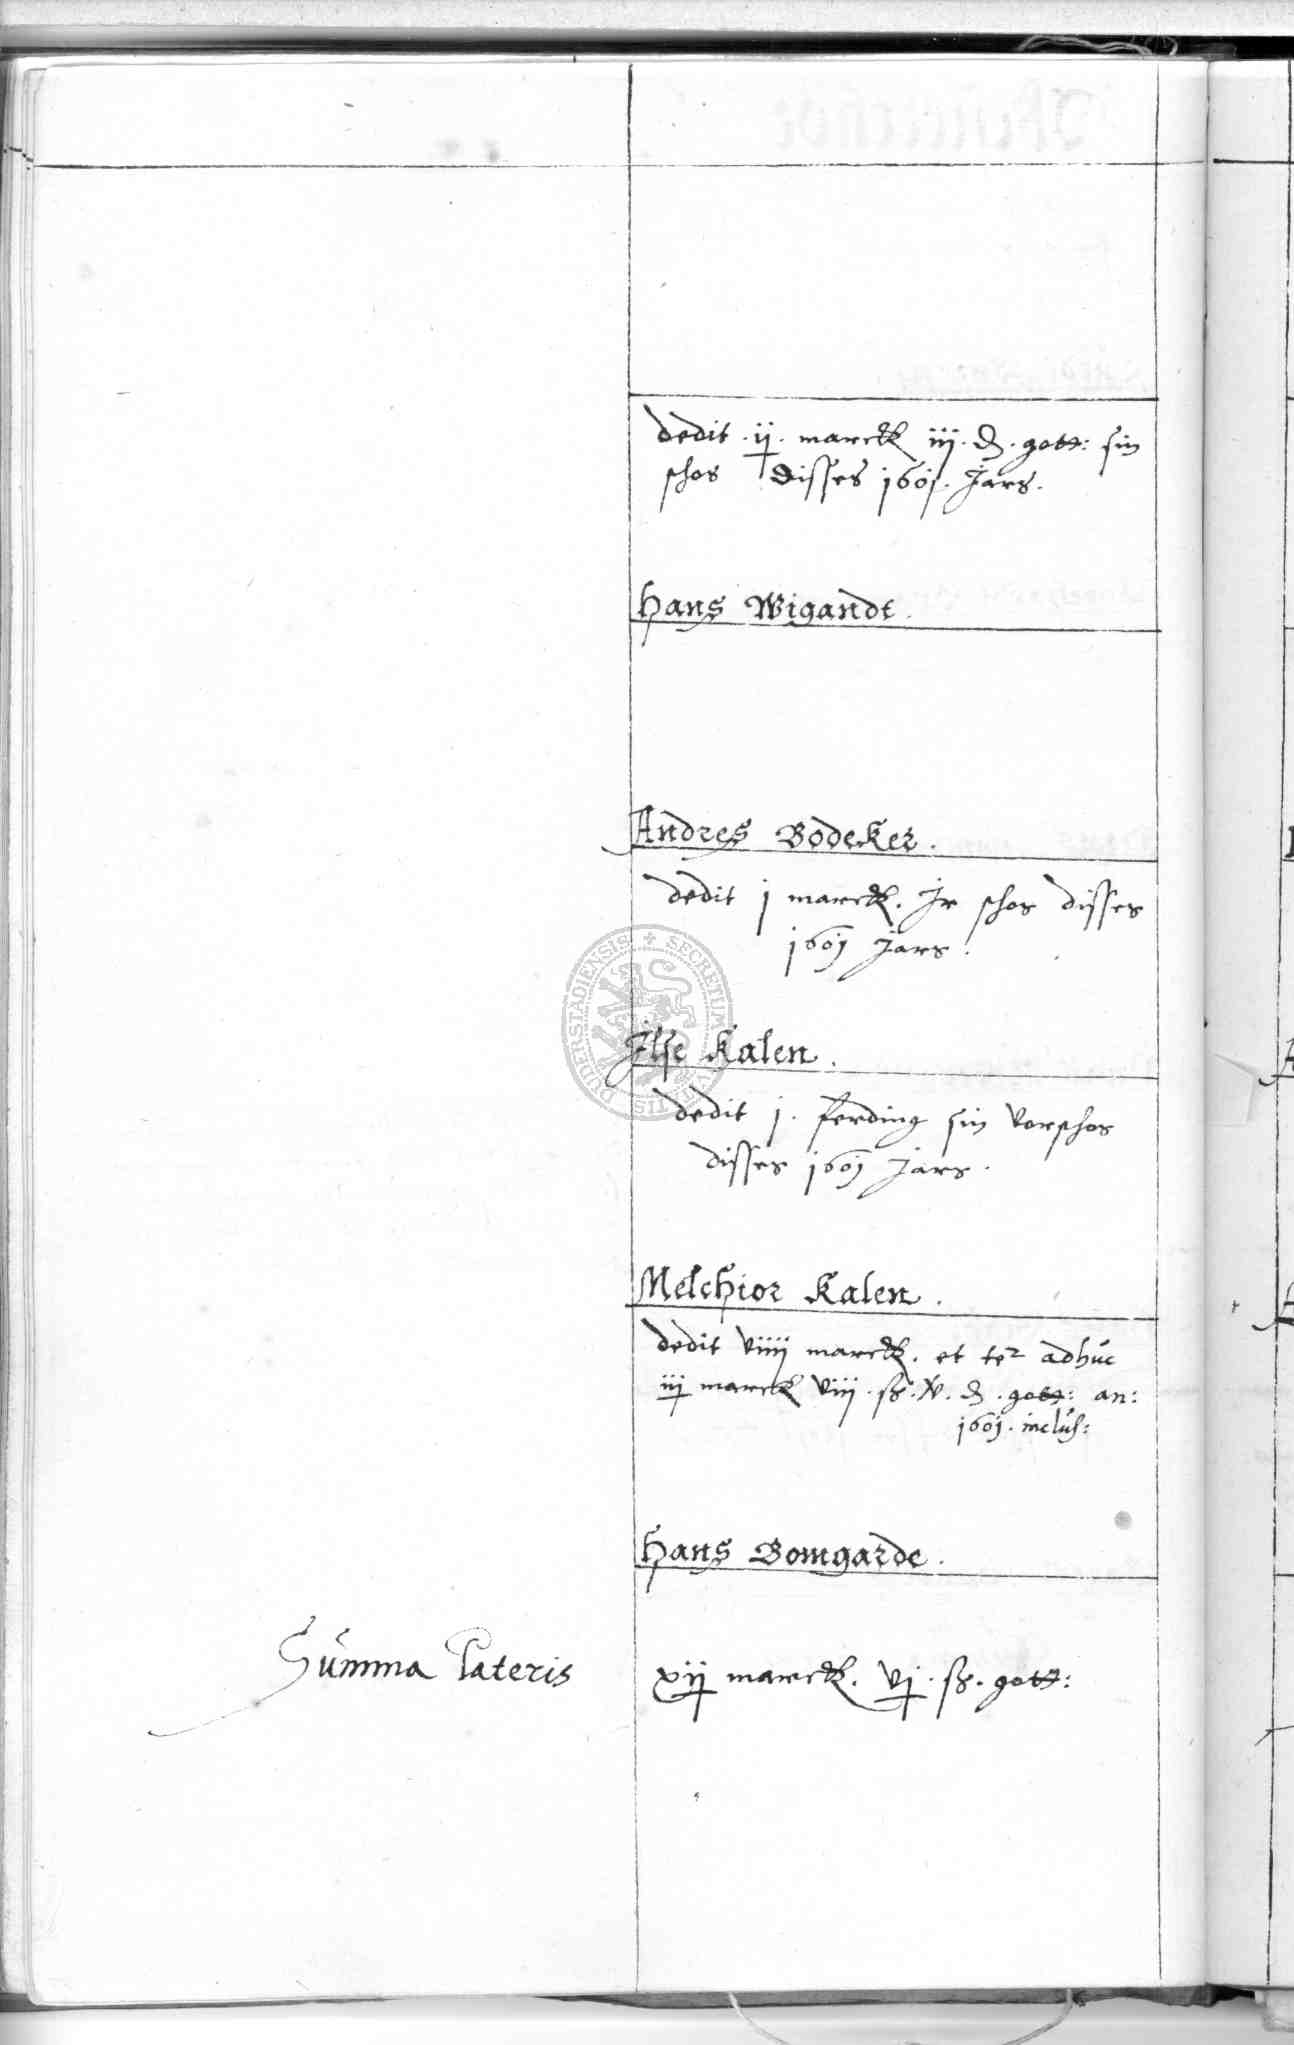 dedit . ij . marck iiij . ₰ . gott: sin
schos disses 1601. Jars.
Hans Wigandt.
Andres Bodeker.
dedit j marck. Jr schos disses
1601 Jars.
Ilse Kalen.
dedit j. ferding sin vorschos
disses 1601 Jars.
Melchior Kalen.
dedit viiij marck. et adhuc
iij marck viij . ß . . ₰ . gott: an:
1601. inclus:
Hans Bomgarde.
Summa Lateris xij marck. vj . ß. gott:
SECRETUM CIVITATIS DUDERSTADIENSIS